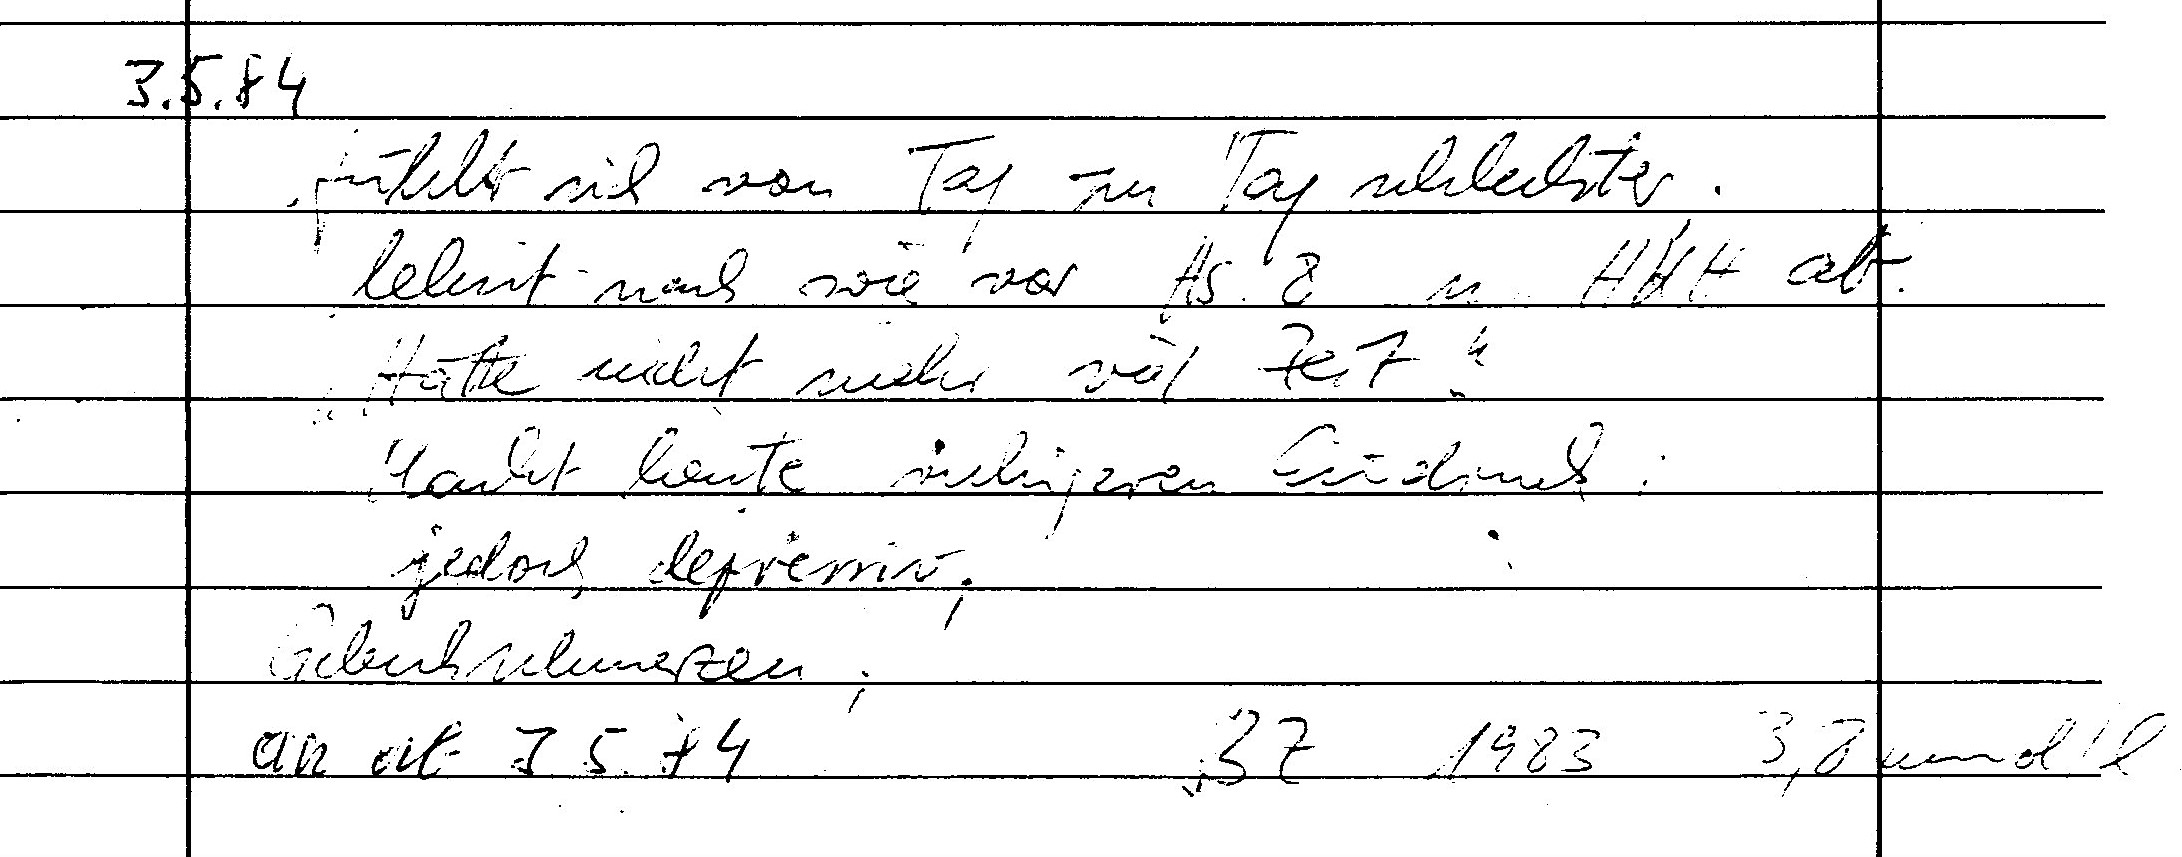 3.5.84
fühlt sich von Tag zu Tag schlechter.
lehnt nach wie vor As. 8 u. HKH ab.
"Hätte nicht mehr viel Zeit"
Macht heute ruhigeren Eindruck:
jedoch depressiv;
Gelenkschmerzen;
3.5.84 BZ 1983 3,8 mmol/l